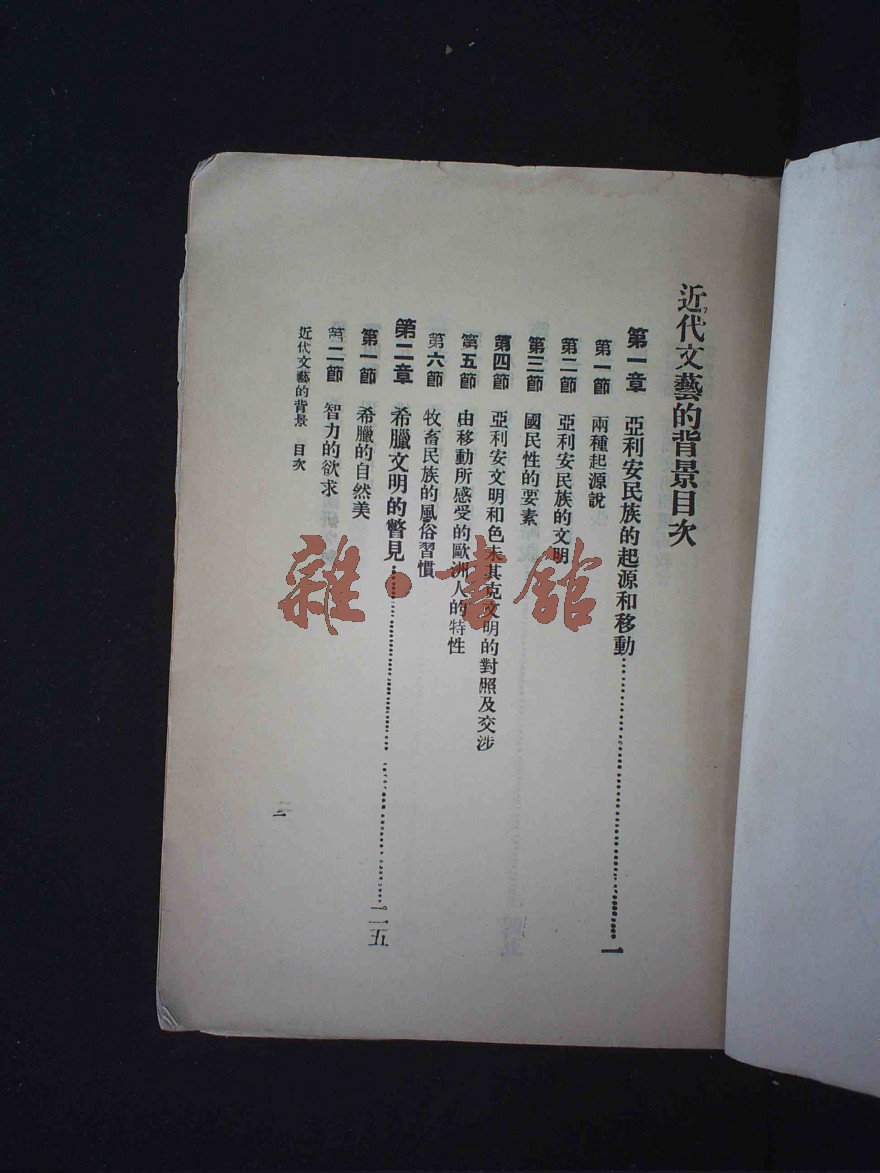 近代文藝的背景目次
第一章 亞利安民族的起源和移動 一
第一節 兩種起源說
第二節 亞利安民族的文明
第三節 國民性的要素
第四節 亞利安文明和色米其克文明的對照及交涉
第五節 由移動所感受的歐洲人的特性
第六節 牧畜民族的風俗習慣
第二章 希臘文明的瞥見 二五
第一節 希臘的自然美
第二節 智力的欲求
近代文藝的背景 目次
雜·書館